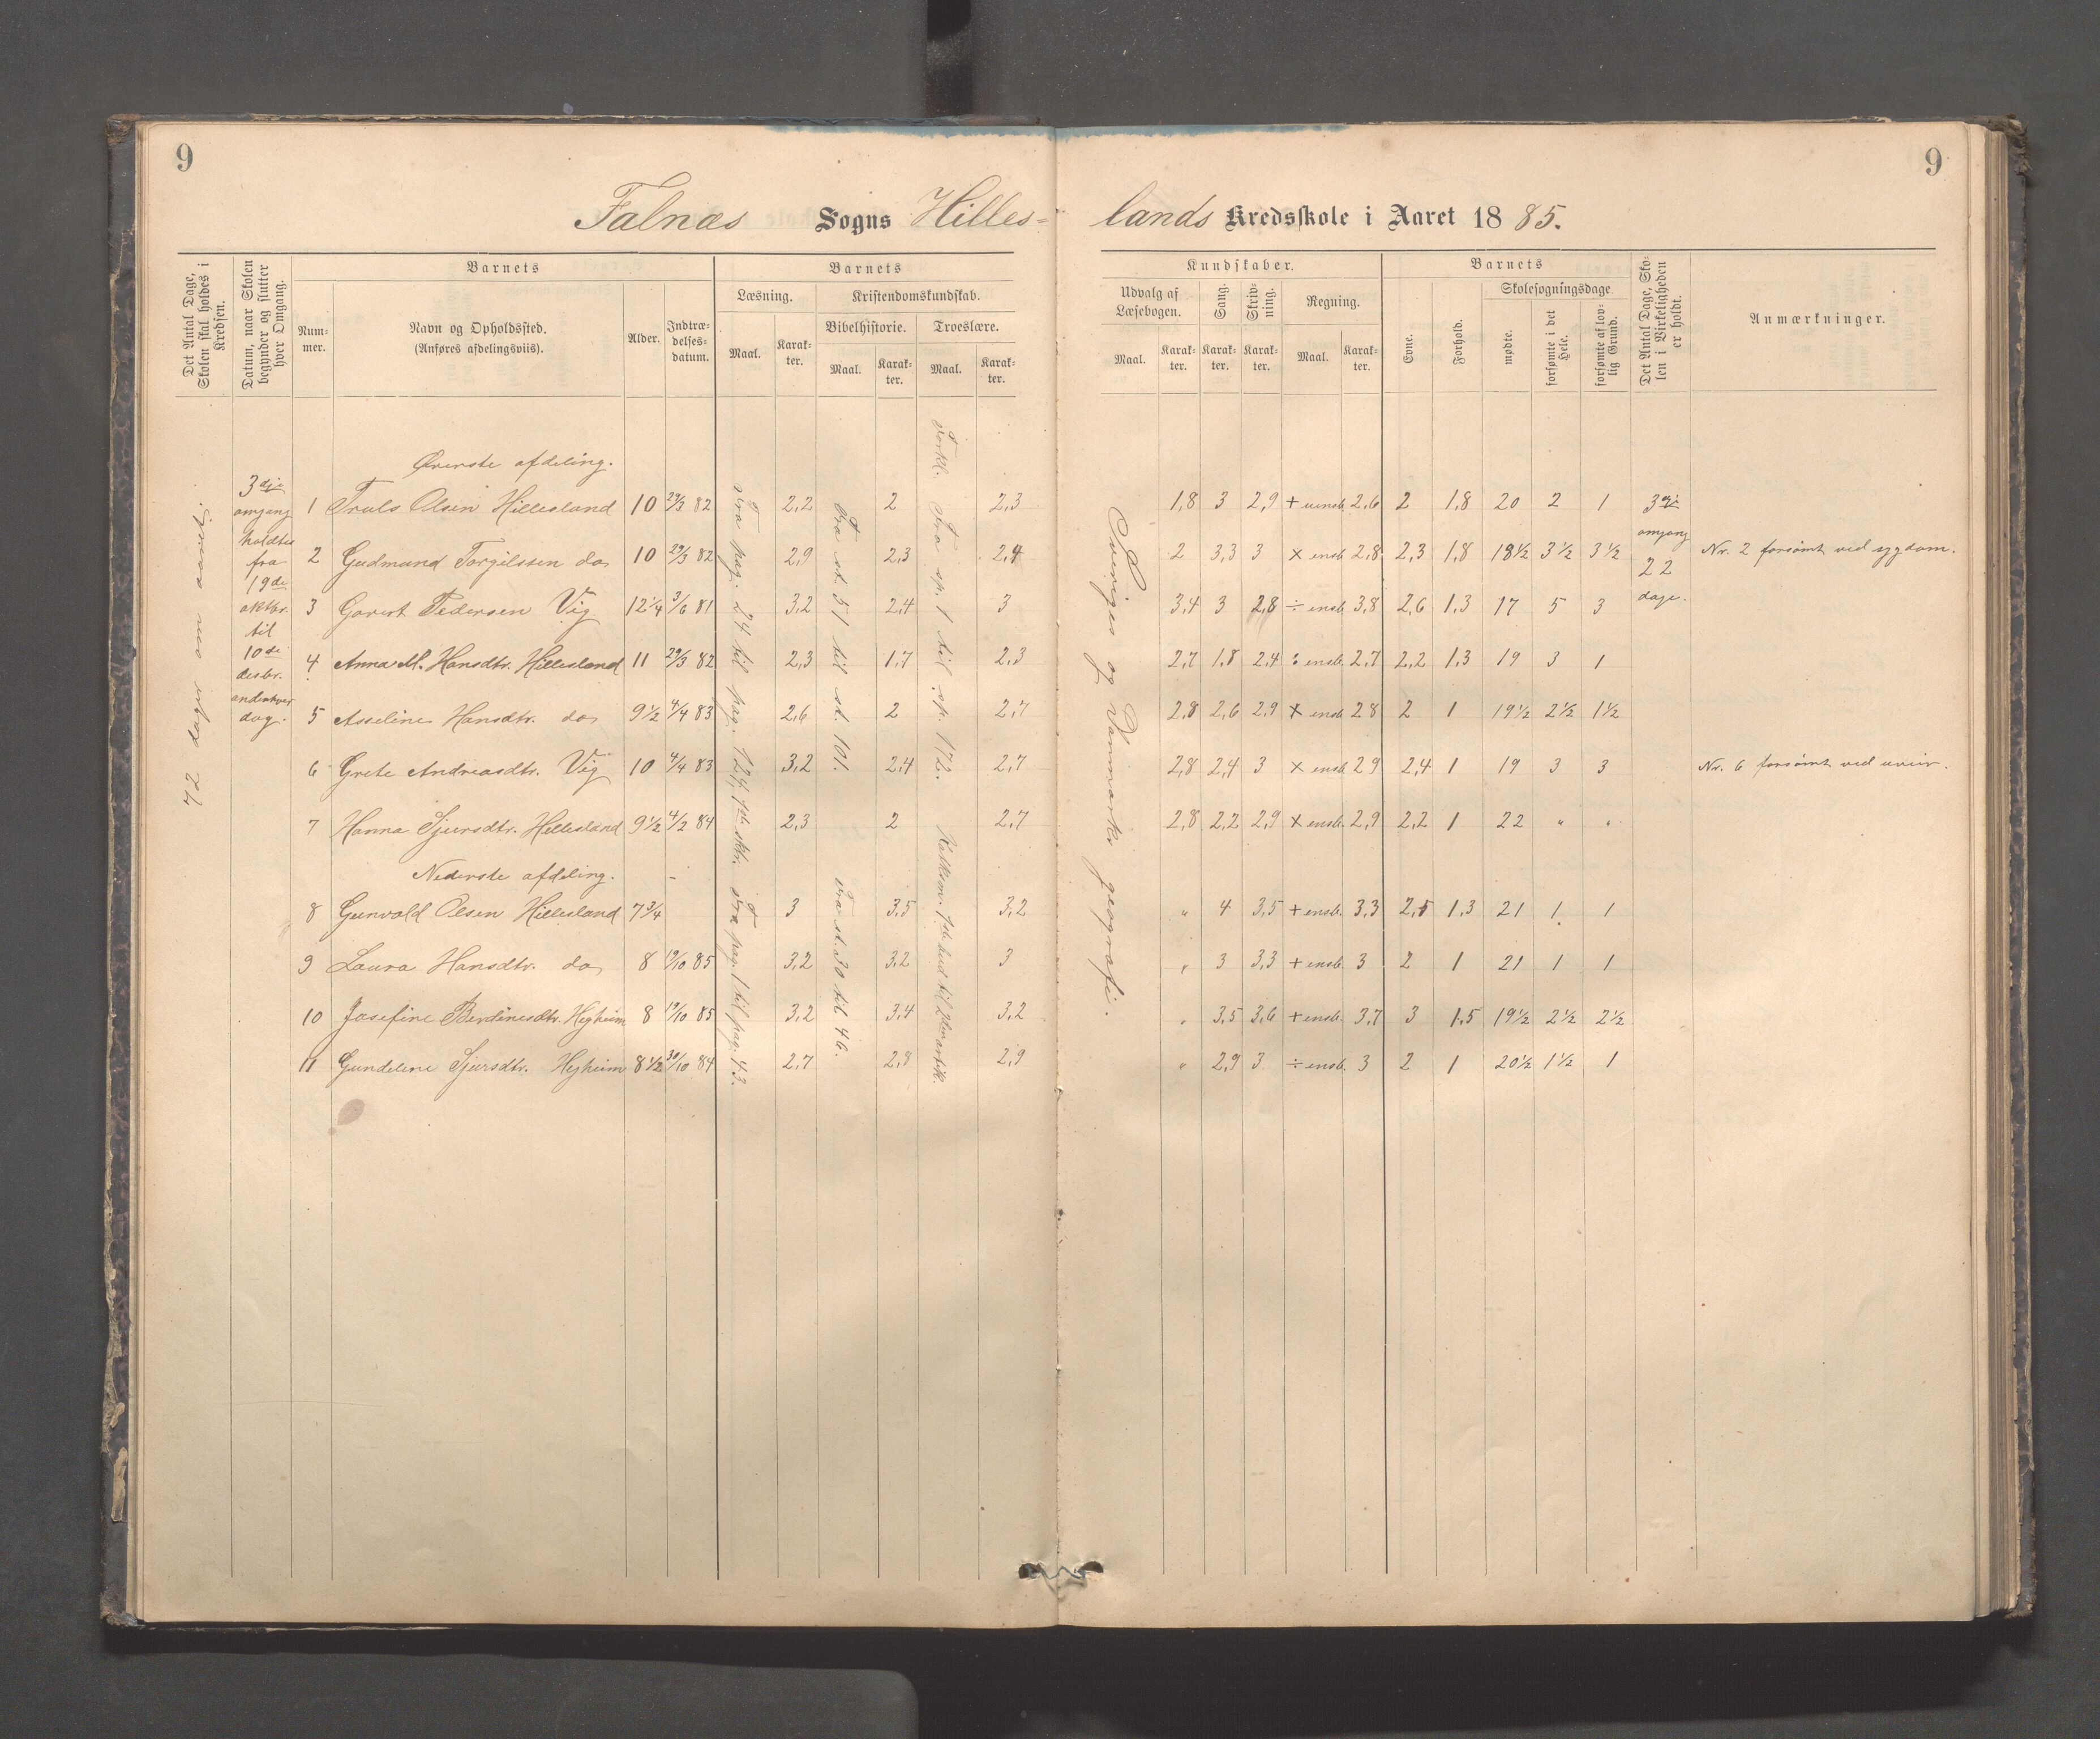 9
9
Falnæs Sogns Hilles-
lands Kredsskole i Aaret 1885.
Det Antal Dage, Skolen skal holdes i Kredsen.
Datum, naar Skolen begynder og slutter hver Omgang.
Barnets
Nummer.
Navn og Opholdssted.
(Anføres afdelingsviis).
Alder.
Indtrædelsesdatum.
Barnets
Læsning.
Kristendomskundskab.
Bibelhistorie.
Troeslære.
Maal.
Karakter.
Maal.
Karakter.
Maal.
Karakter.
Kundskaber.
Udvalg af Læsebogen.
Sang.
Skrivning.
Regning.
Maal.
Karakter.
Karakter.
Karakter.
Maal.
Karakter.
Barnets
Evne.
Forhold.
Skolesøgningsdage
mødte.
forsømte i det Hele.
forsømte af lovlig Grund.
Det Antal Dage, Skolen i Virkeligheden er holdt.
Anmærkninger.
72 dager om
3dje
omgang
holdtes
fra
19de
oktbr.
til
10de
desbr.
dag.
Fra pag. 24 til pag. 124, 1ste
Fra st. 51 til st. 101.
Forkl. Fra sp. 1 til sp. 172.
Sveriges og Danmarks geografi.
Øverste afdeling.
1 Truls Olsen Hillesland 10 29/3 82 2,2 2 2,3 1,8 3 2,9 + 2,6 2 1,8 20 2 1
2 Gudmund Torgilssen do 10 29/3 82 2,9 2,3 2,4 2 3,3 3 × ensb. 2,8 2,3 1,8 18½ 3½ 3½ Nr. 2 forsømt ved sygdom.
3 Govert Pedersen Vig 12¼ 3/6 81 3,2 2,4 3 3,4 3 2,8 ÷ ensb. 3,8 2,6 1,3 17 5 3
4 Anna M. Hansdtr. Hillesland 11 29/3 82 2,3 1,7 2,3 2,7 1,8 2,4 : ensb. 2,7 2,2 1,3 19 3 1
5 Asseline Hansdtr. do 9½ 4/4 83 2,6 2 2,7 2,8 2,6 2,9 × ensb. 2 8 2 1 19½ 2½ 1½
6 Grete Andreasdtr. Vig 10 4/4 83 3,2 2,4 2,7 2,8 2,4 3 × ensb. 2 9 2,4 1 19 3 3 Nr. 6 forsømt ved
7 Hanna Sjursdtr. Hillesland 9½ 4/2 84 2,3 2 2,7 2,8 2,2 2,9 × ensb. 2,9 2,2 1 22 " "
3dje
omgang
22
dage.
Nederste afdeling.
Fra pag. 1 til pag. 43.
Fra st. 30 til 46.
8 Gunvald Olsen Hillesland 7¾ 3 3,5 3,2 " 4 3,5 + ensb. 3,3 2,5 1,3 21 1 1
9 Laura Hansdtr. do 8 19/10 85 3,2 3,2 3 " 3 3,3 + ensb. 3 2 1 21 1 1
10 Josefine Berdinesdtr. Hejheim 8 19/10 85 3,2 3,4 3,2 " 3,5 3,6 + ensb. 3,7 3 1,5 19½ 2½ 2½
11 Gundeline Sjursdtr. Hejheim 8½ 30/10 84 2,7 2,8 2,9 " 2,9 3 ÷ ensb. 3 2 1 20½ 1½ 1